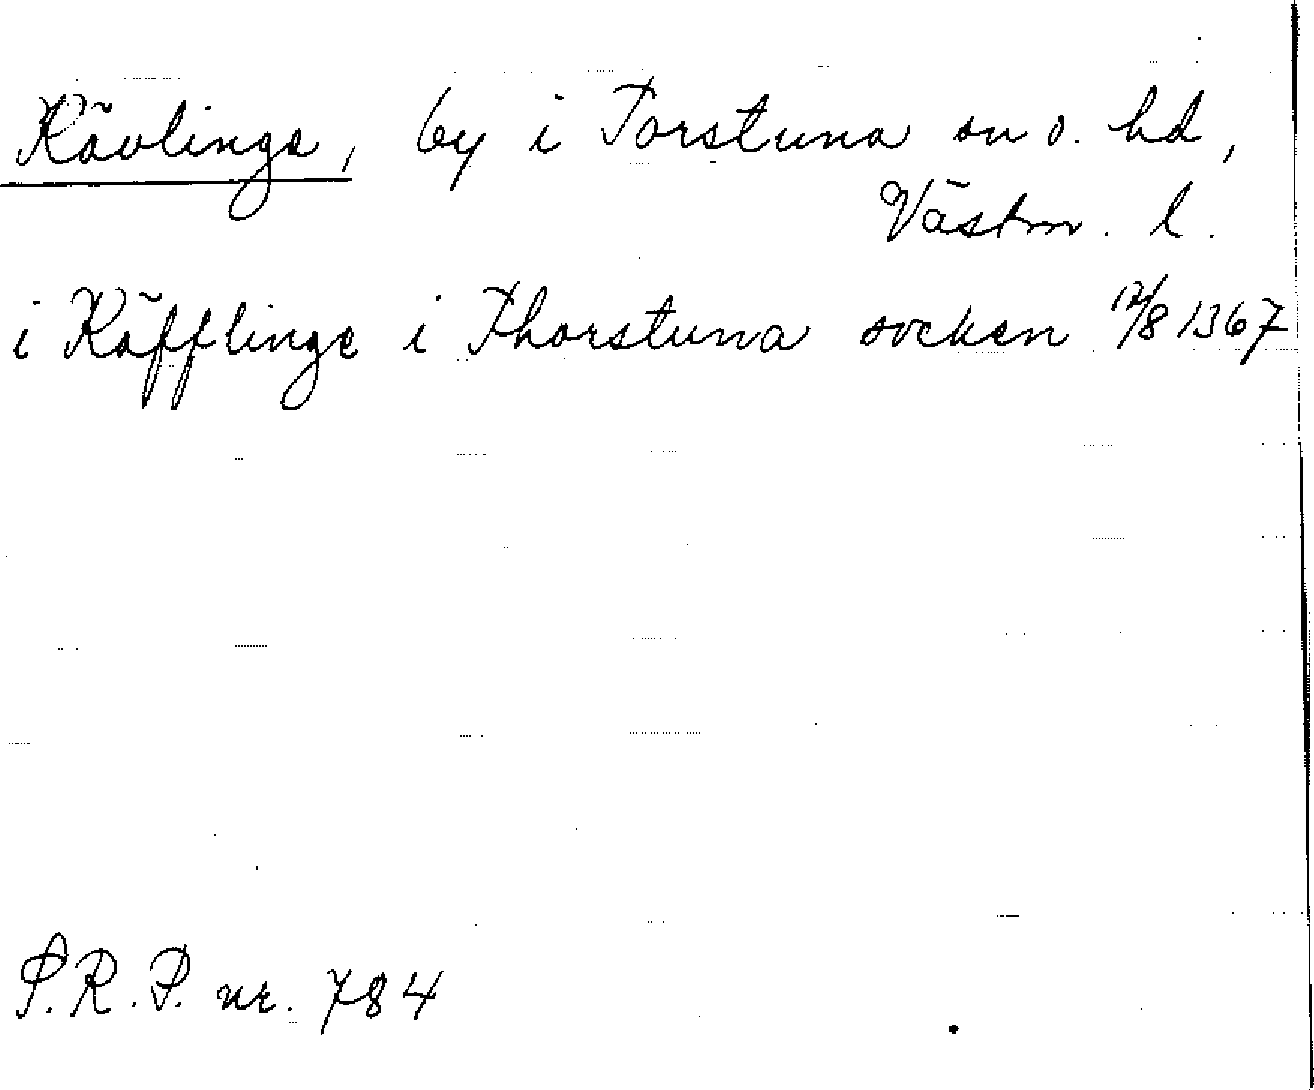 Kävlinge, by i Torstuna sn o. hd,
Västm. l.
i Käfflinge i Thorstuna socken 12/8 1367
S.R.P. nr. 784